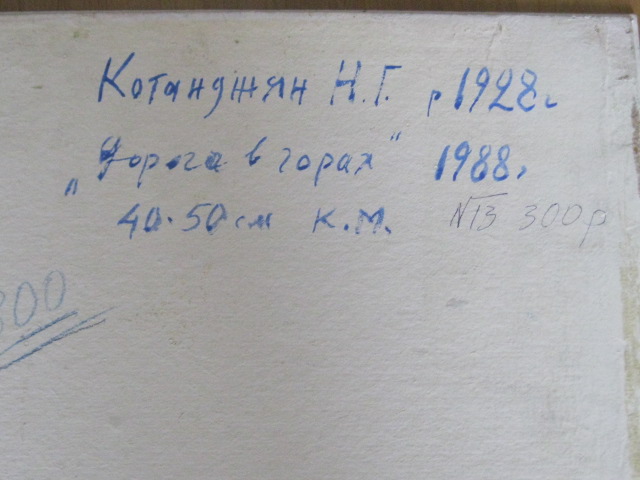 Котанджян Н.Г. р 1928г
„Дорога в горах" 1988г.
40·50 см К.М. №13 300р
300